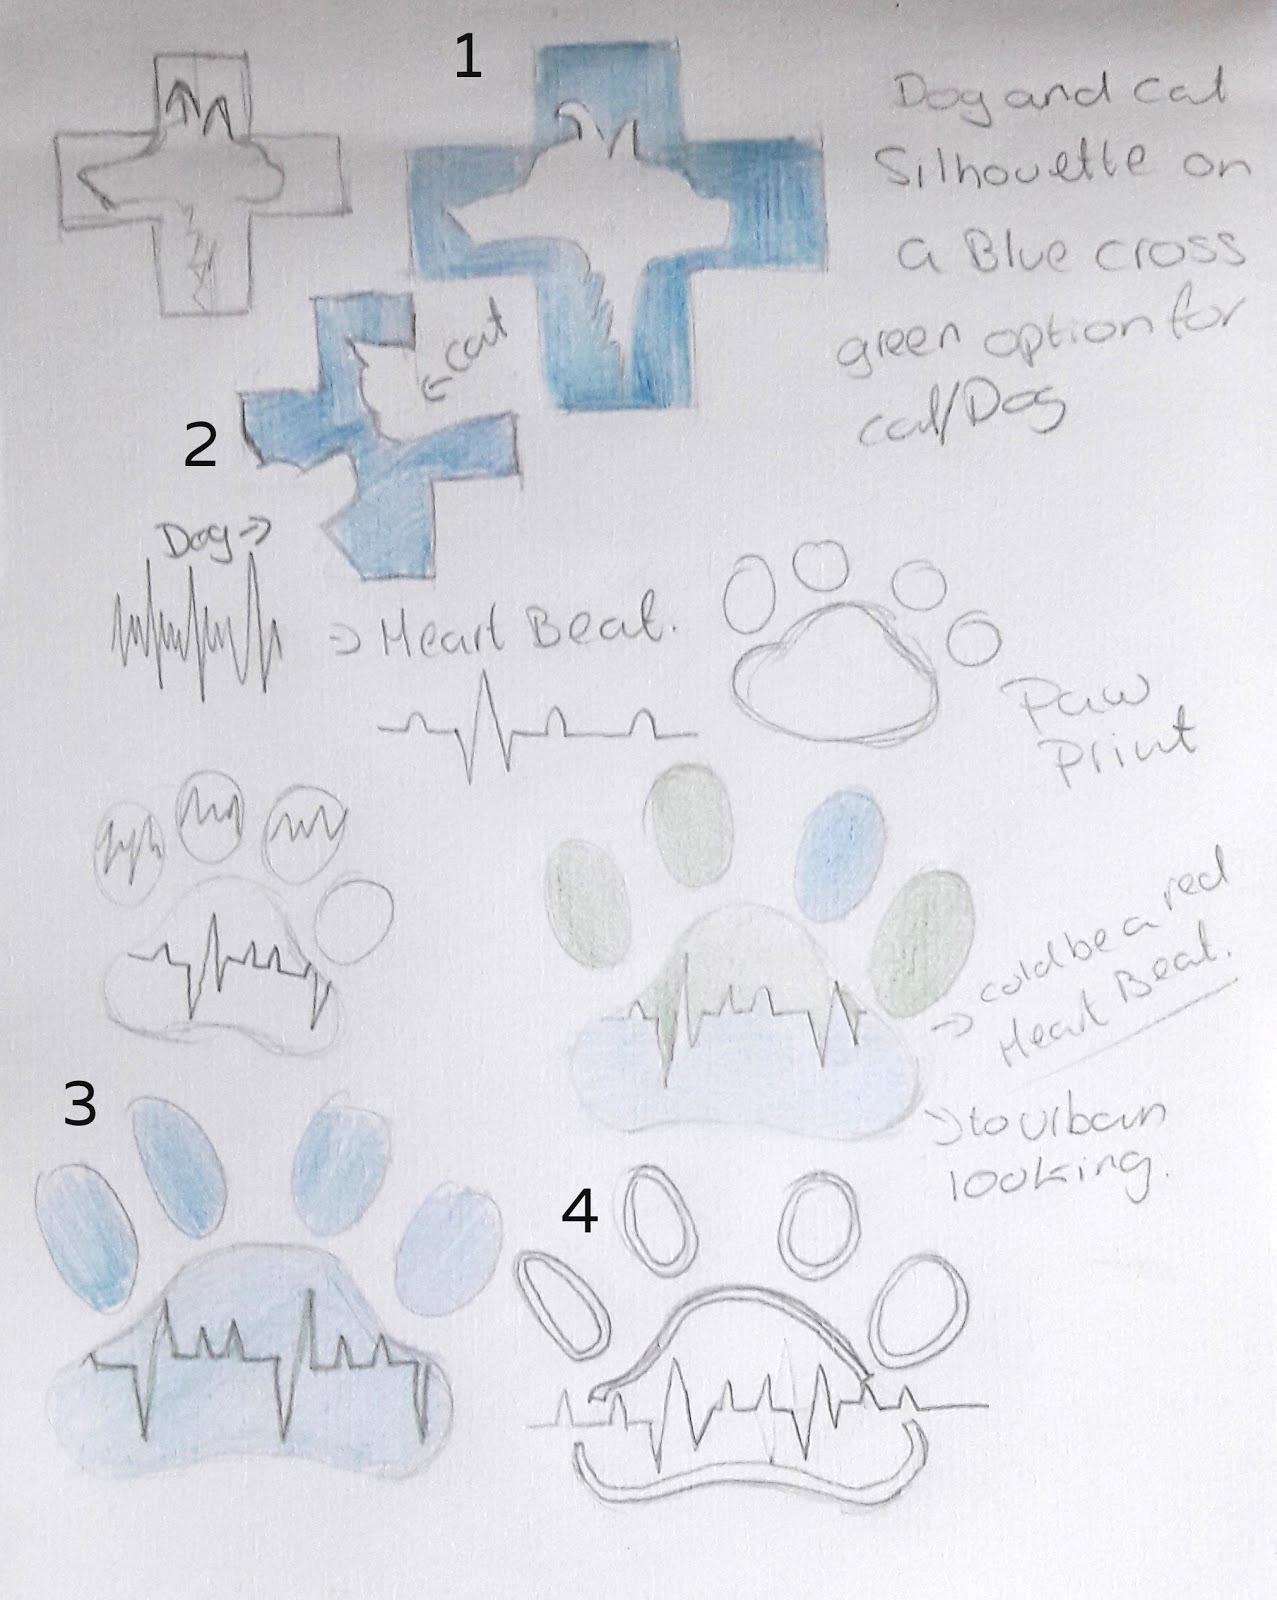 1
Dog and cat
Silhouette on
a Blue cross
green option for
cat/Dog
← cat
2
Dog →
→ Heart Beat.
Paw
Print
→ cold be a red
Heart Beat.
3
→ to urban
looking.
4